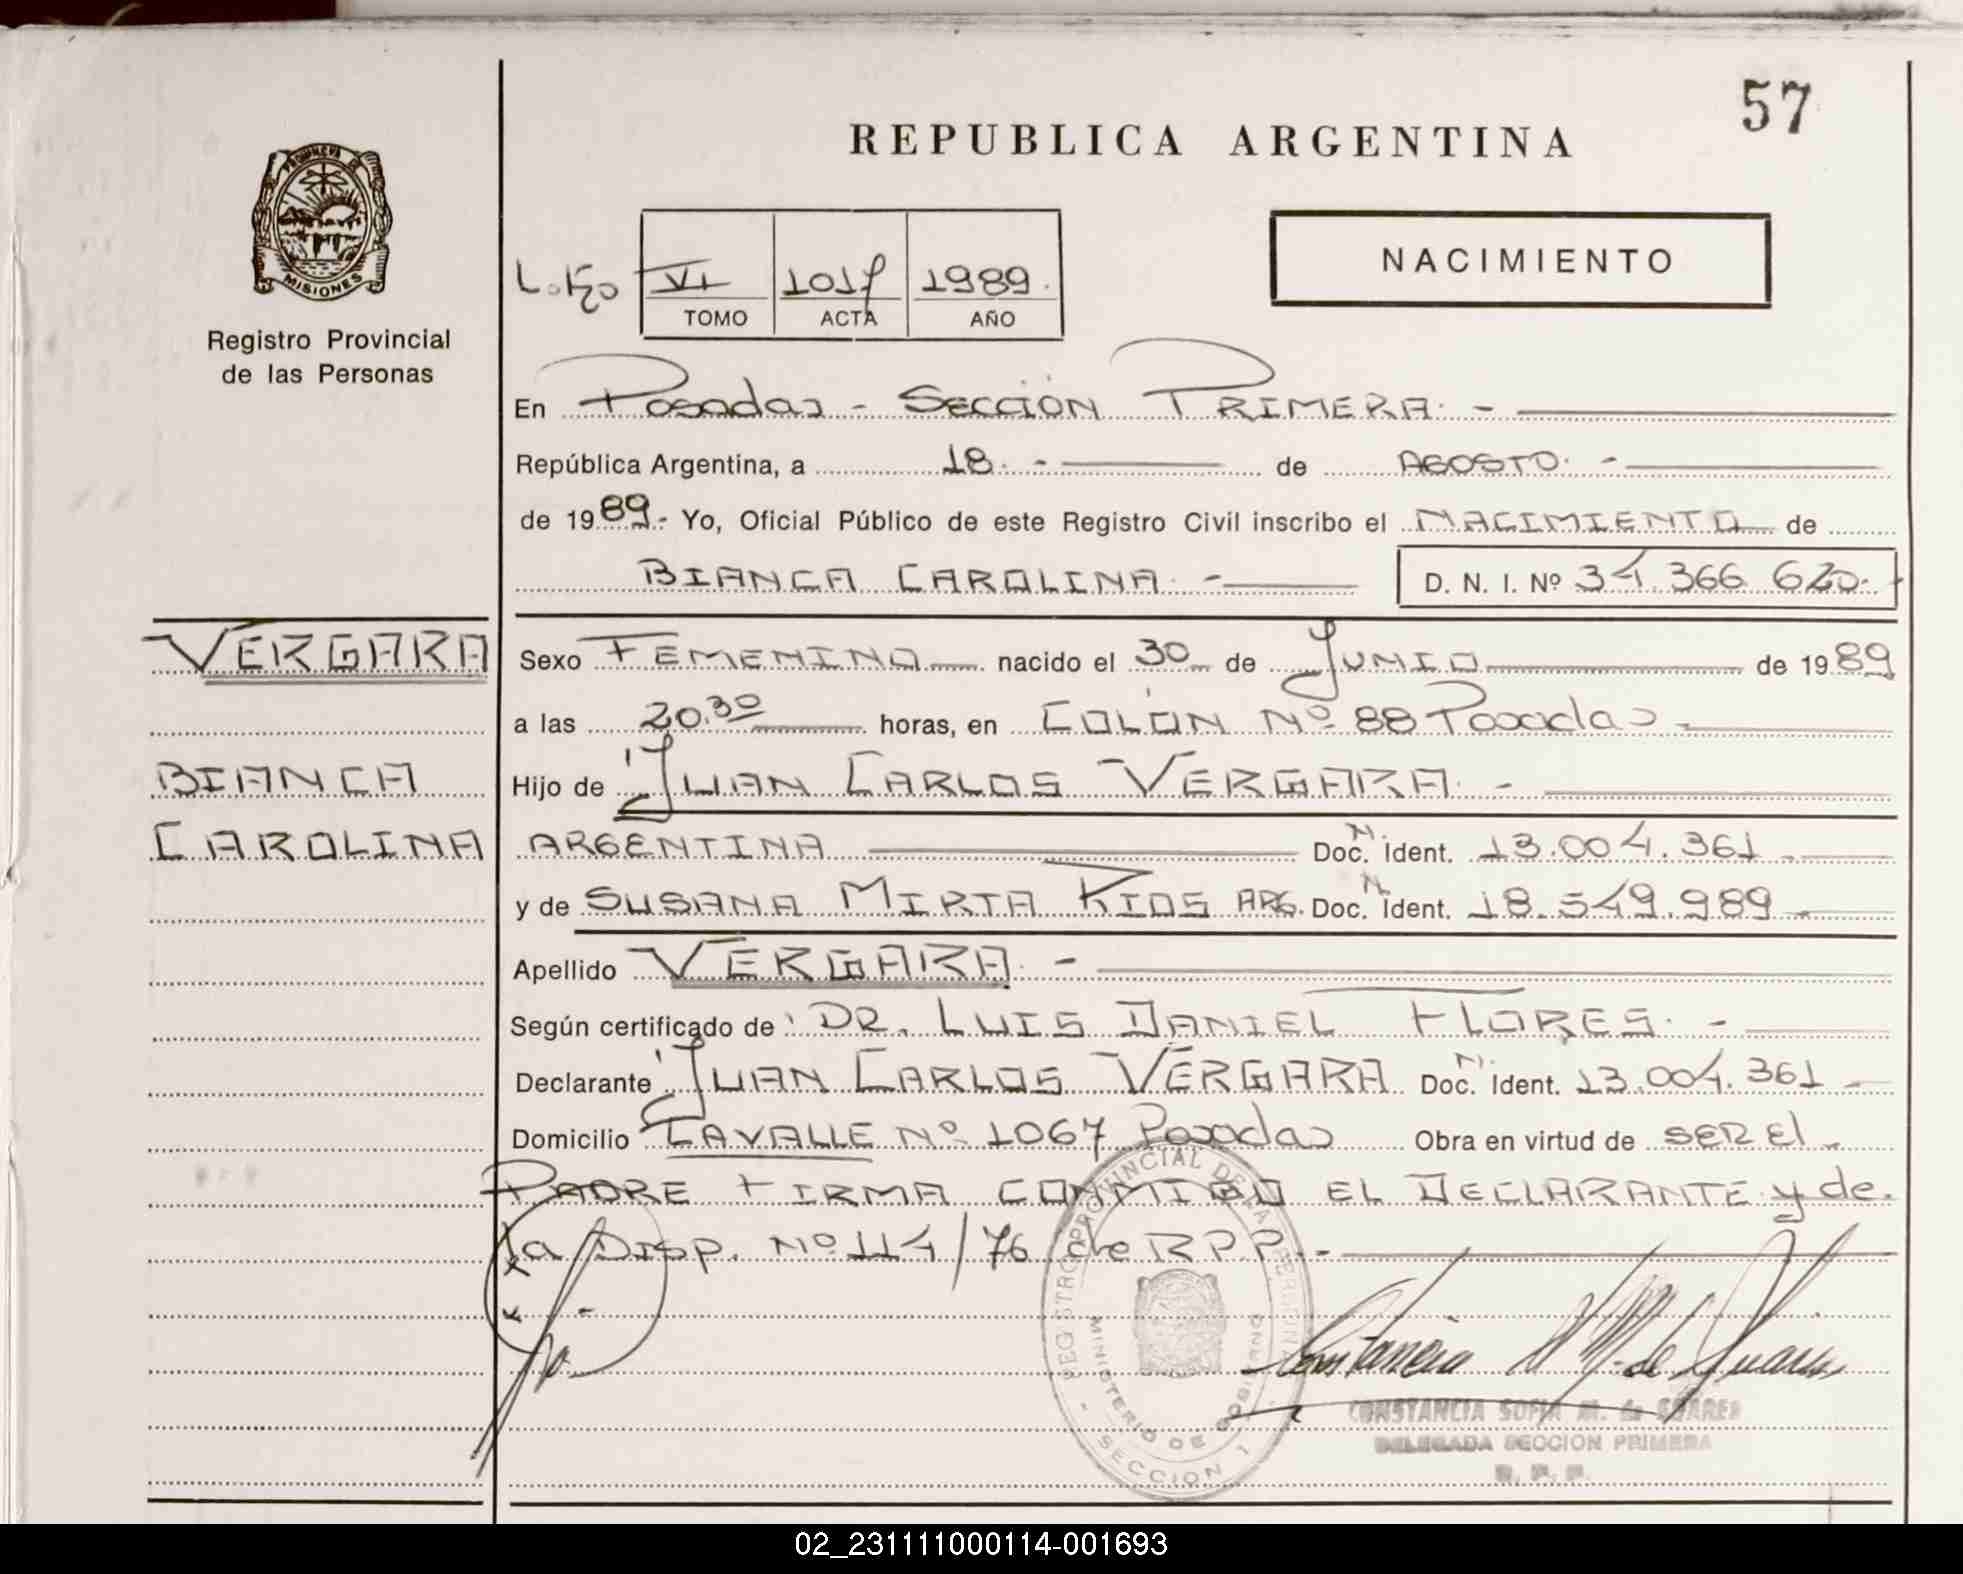 57
REPUBLICA ARGENTINA
PROVINCIA DE
MISIONES
Registro Provincial
de las Personas
NACIMIENTO
VI 1017 1989.
TOMO ACTA AÑO
En Posadas - Sección Primera. -
República Argentina, a 18. - de Agosto. -
de 1989.- Yo, Oficial Público de este Registro Civil inscribo el NACIMIENTO de
BIANCA CAROLINA. - D. N. I. Nº 34.366.620.-
VERGARA
Sexo FEMENINO nacido el 30 de Junio de 1989
a las 20.30 horas, en COLÓN Nº 88 Posadas -
BIANCA
Hijo de JUAN CARLOS VERGARA. -
CAROLINA
ARGENTINA Doc. N. Ident. 13.004.361.
y de SUSANA MIRTA RIOS ARG. Doc. N. Ident. 18.549.989.
Apellido VERGARA. -
Según certificado de DR. LUIS DANIEL FLORES. -
Declarante JUAN CARLOS VERGARA Doc. N. Ident. 13.004.361 -
Domicilio LAVALLE Nº 1067 Posadas Obra en virtud de SER El
PADRE FIRMA CONMIGO EL DECLARANTE y de
la Disp. Nº 114/76 de RPP. -
REGISTRO PROVINCIAL DE LAS PERSONAS
MINISTERIO DE GOBIERNO
- SECCION 1 -
CONSTANCIA SOFIA M. de SUAREZ
DELEGADA SECCION PRIMERA
R. P. P.
02_231111000114-001693